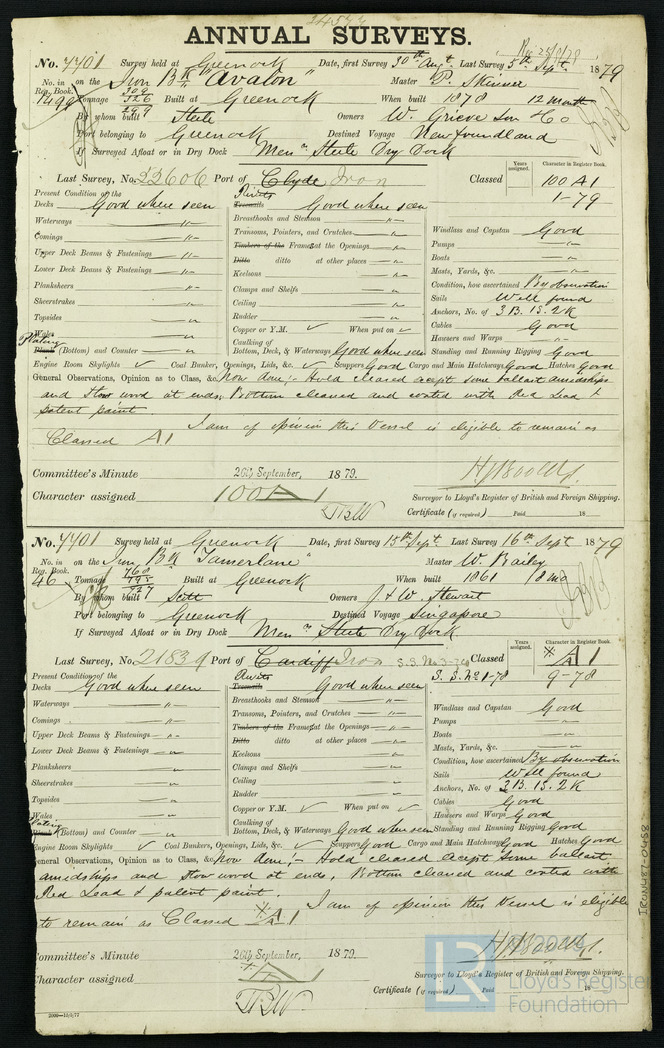 24577
ANNUAL SURVEYS.
Rec 23/9/79
No. 7701 Survey held at Greenock Date, first Survey 30th Augt. Last Survey 5th Sept. 1879
No. in Reg. Book. on the Iron Bk "Avalon" Master P. Skinner
1499 Tonnage 309 326 297 Built at Greenock When built 1878 12 month
By whom built Steele Owners W. Grieve Son & Co
Port belonging to Greenock Destined Voyage Newfoundland
If Surveyed Afloat or in Dry Dock Mess rs Steele Dry Dock
Years assigned. Character in Register Book.
Last Survey, No. 22606 Port of Clyde Iron Classed 100 A1
1-79
Present Condition of the Rivets
Decks Good where seen Treenails Good where seen
Waterways " Breasthooks and Stemson " Windlass and Capstan Good
Comings " Transoms, Pointers, and Crutches " Pumps "
Upper Deck Beams & Fastenings " Timbers of the Frames at the Openings " Boats "
Lower Deck Beams & Fastenings " Ditto ditto at other places " Masts, Yards, &c. "
Planksheers " Keelsons " Condition, how ascertained By observation
Sheerstrakes " Clamps and Shelfs " Sails Well found
Topsides " Ceiling " Anchors, No. of 3 B. 1 S. 2 K
Wales " Rudder " Cables Good
Plating Copper or Y.M. ✓ When put on ✓ Hawsers and Warps "
Plank (Bottom) and Counter " Caulking of Bottom, Deck, & Waterways Good where seen Standing and Running Rigging Good
Engine Room Skylights ✓ Coal Bunker, Openings, Lids, &c. ✓ Scuppers Good Cargo and Main Hatchways Good Hatches Good
General Observations, Opinion as to Class, &c. Now done:- Hold cleared except some ballast amidships
and stow wood at ends. Bottom cleaned and coated with Red Lead &
patent paint.
I am of opinion this Vessel is eligible to remain as
Classed A1
Committee's Minute 26th September, 1879.
Character assigned 100A1
Surveyor to Lloyd's Register of British and Foreign Shipping.
Certificate (if required) Paid 18
No. 7701 Survey held at Greenock Date, first Survey 15th Sept. Last Survey 16th Sept 1879
No. in Reg. Book. on the Iron Bk "Tamerlane" Master W. Bailey
46 Tonnage 768 795 727 Built at Greenock When built 1861 8 mo
By whom built Scott Owners J & W. Stewart
Port belonging to Greenock Destined Voyage Singapore
If Surveyed Afloat or in Dry Dock Mess rs Steele Dry Dock
Years assigned. Character in Register Book.
Last Survey, No. 21839 Port of Cardiff Iron S.S. No 3-7 Classed A 1
S.S. No 1-78 9-78
Present Condition of the Rivets
Decks Good where seen Treenails Good where seen
Waterways " Breasthooks and Stemson " Windlass and Capstan Good
Comings " Transoms, Pointers, and Crutches " Pumps "
Upper Deck Beams & Fastenings " Timbers of the Frames at the Openings " Boats "
Lower Deck Beams & Fastenings " Ditto ditto at other places " Masts, Yards, &c. "
Planksheers " Keelsons " Condition, how ascertained By observation
Sheerstrakes " Clamps and Shelfs " Sails Well found
Topsides " Ceiling " Anchors, No. of 3 B. 1 S. 2 K
Wales " Rudder " Cables Good
Plating Copper or Y.M. ✓ When put on ✓ Hawsers and Warps Good
Plank (Bottom) and Counter " Caulking of Bottom, Deck, & Waterways Good where seen Standing and Running Rigging Good
Engine Room Skylights ✓ Coal Bunkers, Openings, Lids, &c. ✓ Scuppers Good Cargo and Main Hatchways Good Hatches Good
General Observations, Opinion as to Class, &c. Now done:- Hold cleared except some ballast
amidships and stow wood at ends. Bottom cleaned and coated with
Red Lead & patent paint.
I am of opinion this Vessel is eligible
to remain as Classed A1
Committee's Minute 26th September, 1879.
Character assigned A1
Surveyor to Lloyd's Register of British and Foreign Shipping.
Certificate (if required) Paid 18
2000—13/5/77
IRON487-0488
LR Lloyd's Register
Foundation